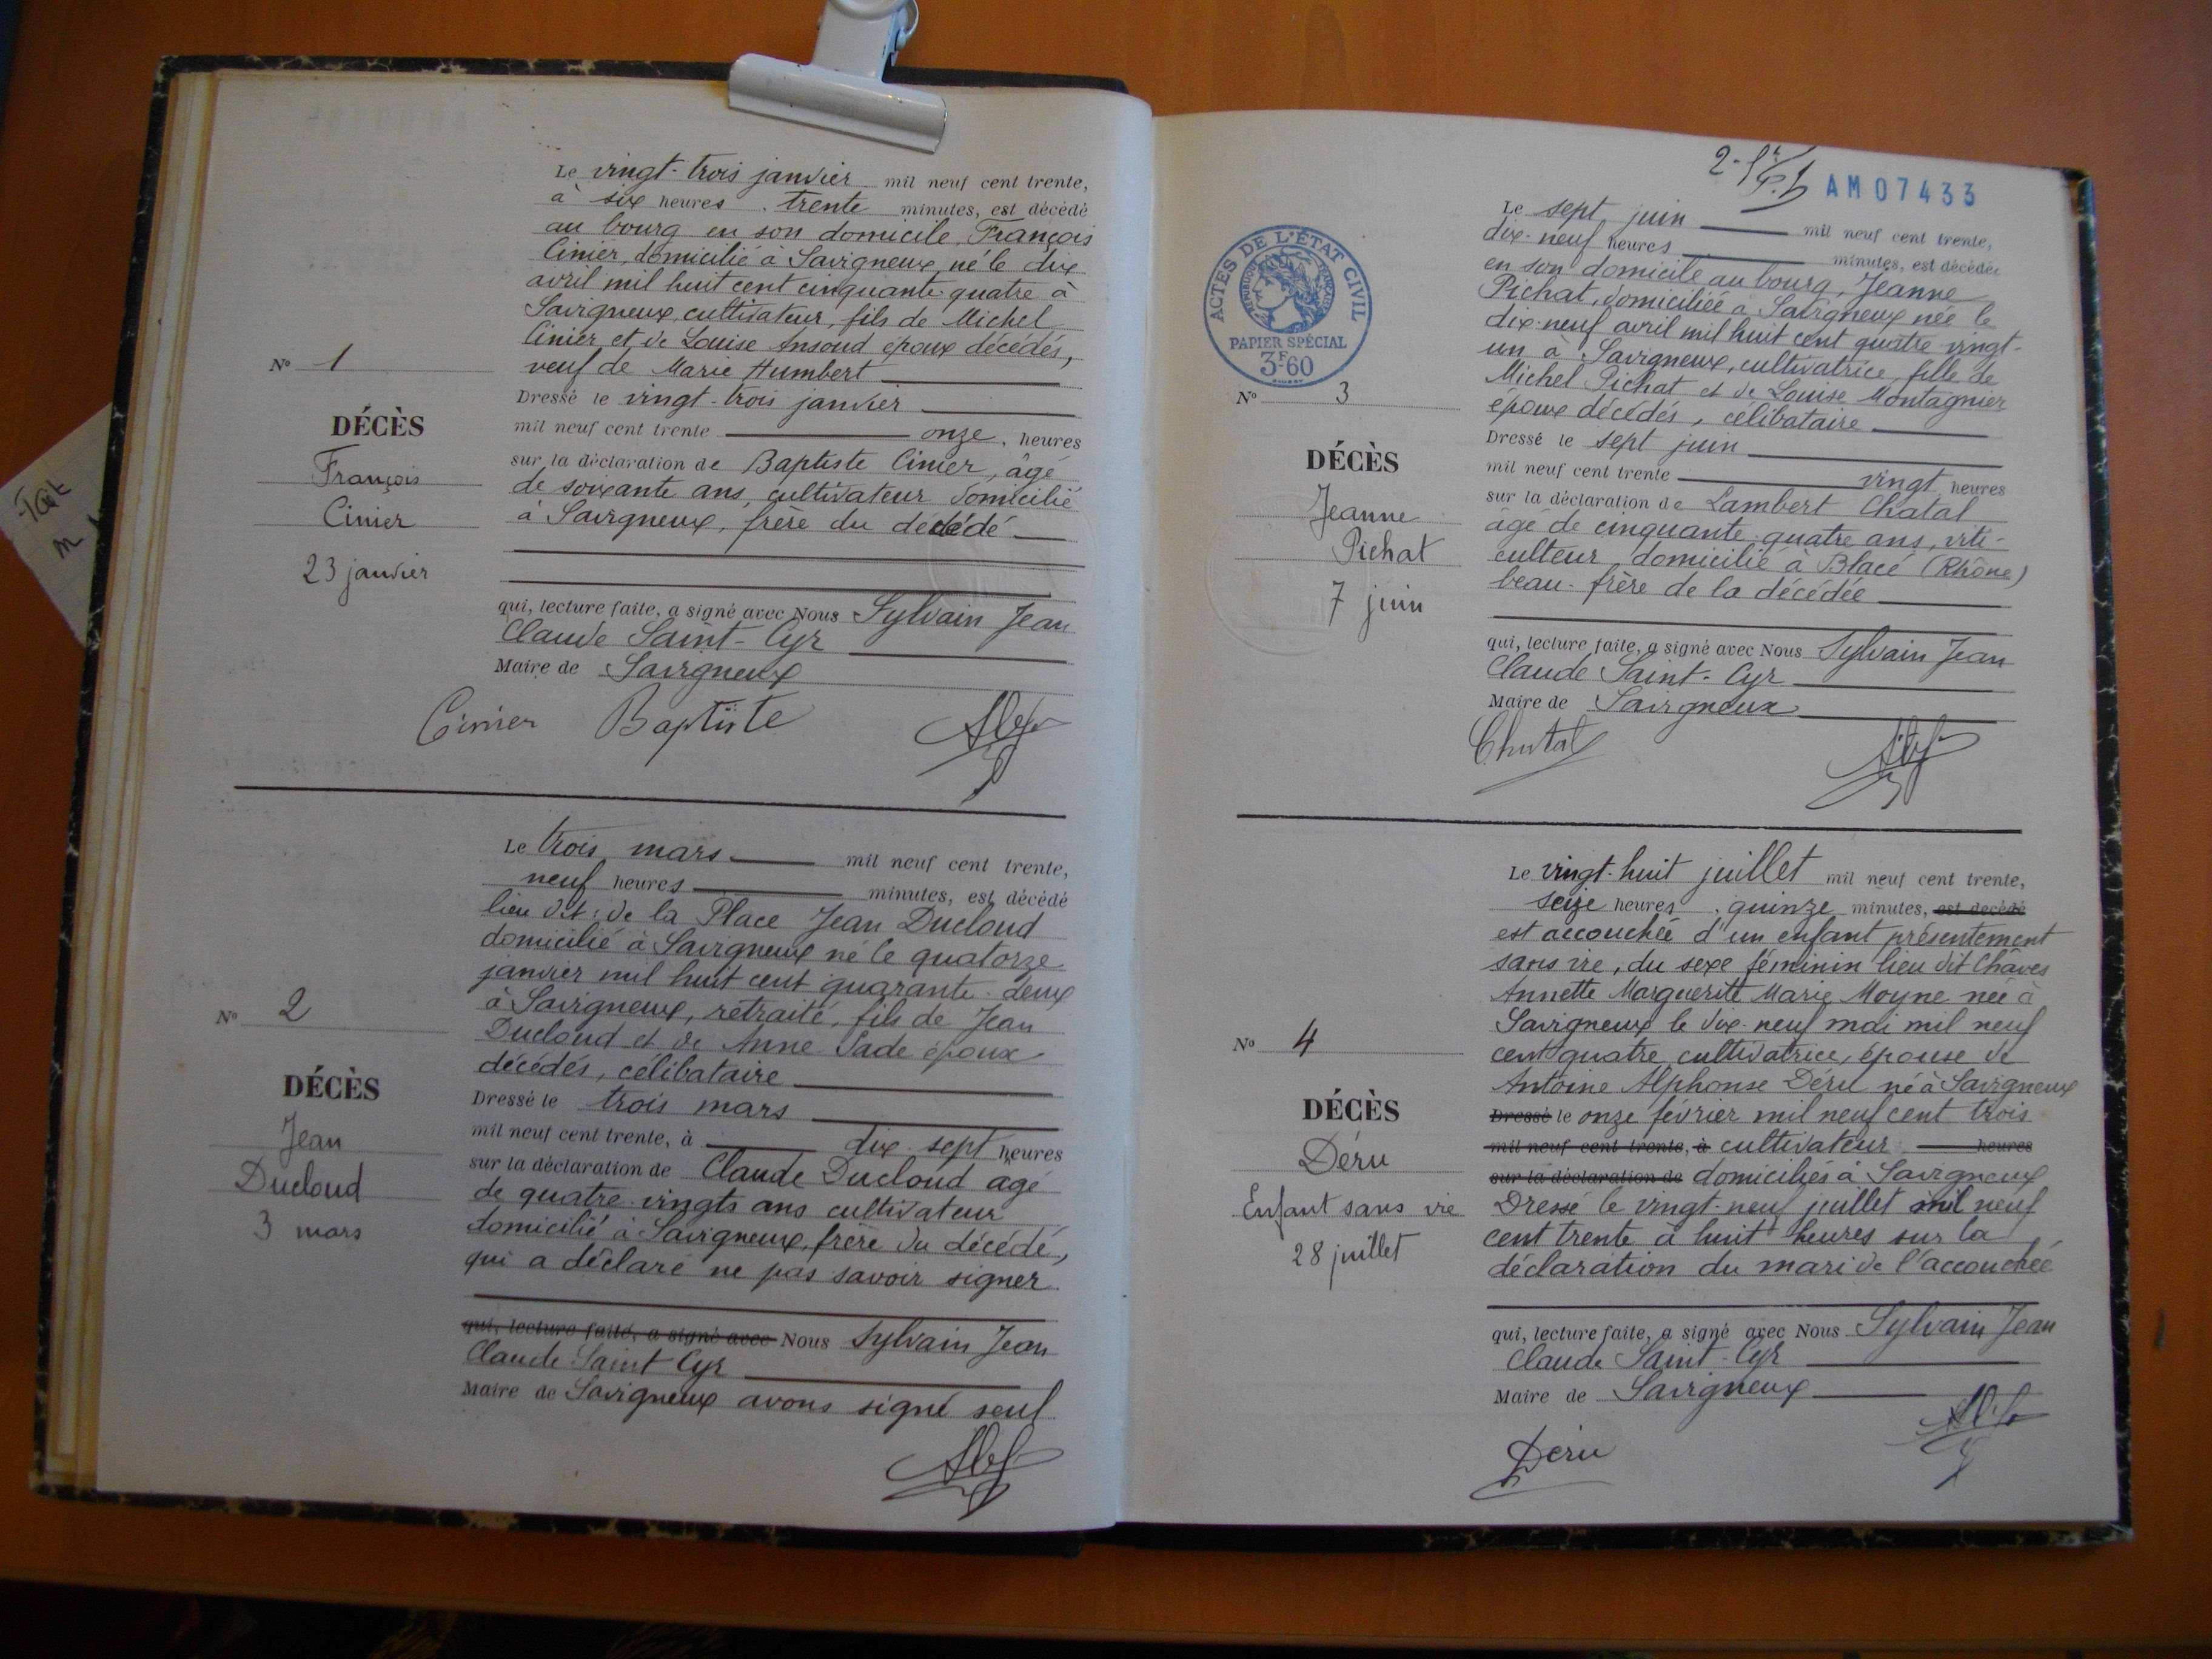 Le vingt-trois janvier mil neuf cent trente,
à six heures trente minutes, est décédé
au bourg en son domicile, François
Cinier, domicilié à Savigneux, né le dix
avril mil huit cent cinquante quatre à
Savigneux, cultivateur, fils de Michel
Cinier et de Louise Ansoud époux décédés,
veuf de Marie Humbert
Dressé le vingt-trois janvier
mil neuf cent trente onze heures
sur la déclaration de Baptiste Cinier, âgé
de soixante ans, cultivateur domicilié
à Savigneux, frère du décédé
qui, lecture faite, a signé avec Nous Sylvain Jean
Claude Saint-Cyr
Maire de Savigneux
Cinier Baptiste
N° 1
DÉCÈS
François
Cinier
23 janvier
Le trois mars mil neuf cent trente,
neuf heures minutes, est décédé
lieu dit: de la Place Jean Ducloud
domicilié à Savigneux né le quatorze
janvier mil huit cent quarante-deux
à Savigneux, retraité, fils de Jean
Ducloud et de Anne Sade époux
décédés, célibataire
Dressé le trois mars
mil neuf cent trente, à dix-sept heures
sur la déclaration de Claude Ducloud agé
de quatre-vingts ans cultivateur
domicilié à Savigneux, frère du décédé,
qui a déclaré ne pas savoir signer
qui, lecture faite, a signé avec Nous Sylvain Jean
Claude Saint Cyr
Maire de Savigneux avons signé seul
N° 2
DÉCÈS
Jean
Ducloud
3 mars
AM07433
ACTES DE L'ÉTAT CIVIL
RÉPUBLIQUE FRANÇAISE
PAPIER SPÉCIAL
3F60
Le sept juin mil neuf cent trente,
dix-neuf heures minutes, est décédée
en son domicile au bourg, Jeanne
Pichat, domiciliée à Savigneux née le
dix-neuf avril mil huit cent quatre vingt-
un à Savigneux, cultivatrice, fille de
Michel Pichat et de Louise Montagnier
époux décédés, célibataire
Dressé le sept juin
mil neuf cent trente vingt heures
sur la déclaration de Lambert Chatal
âgé de cinquante quatre ans, viti-
culteur domicilié à Blacé (Rhône)
beau-frère de la décédée
qui, lecture faite, a signé avec Nous Sylvain Jean
Claude Saint-Cyr
Maire de Savigneux
Chatal
N° 3
DÉCÈS
Jeanne
Pichat
7 juin
Le vingt-huit juillet mil neuf cent trente,
seize heures, quinze minutes, est décédé
est accouchée d'un enfant présentement
sans vie, du sexe féminin lieu dit Chaves
Annette Marguerite Marie Moyne née à
Savigneux le dix-neuf mai mil neuf
cent quatre cultivatrice, épouse de
Antoine Alphonse Déru né à Savigneux
Dressé le onze février mil neuf cent trois
mil neuf cent trente, à cultivateur heures
sur la déclaration de domiciliés à Savigneux
Dressé le vingt-neuf juillet mil neuf
cent trente à huit heures sur la
déclaration du mari de l'accouchée
qui, lecture faite, a signé avec Nous Sylvain Jean
Claude Saint-Cyr
Maire de Savigneux
Déru
N° 4
DÉCÈS
Déru
Enfant sans vie
28 juillet